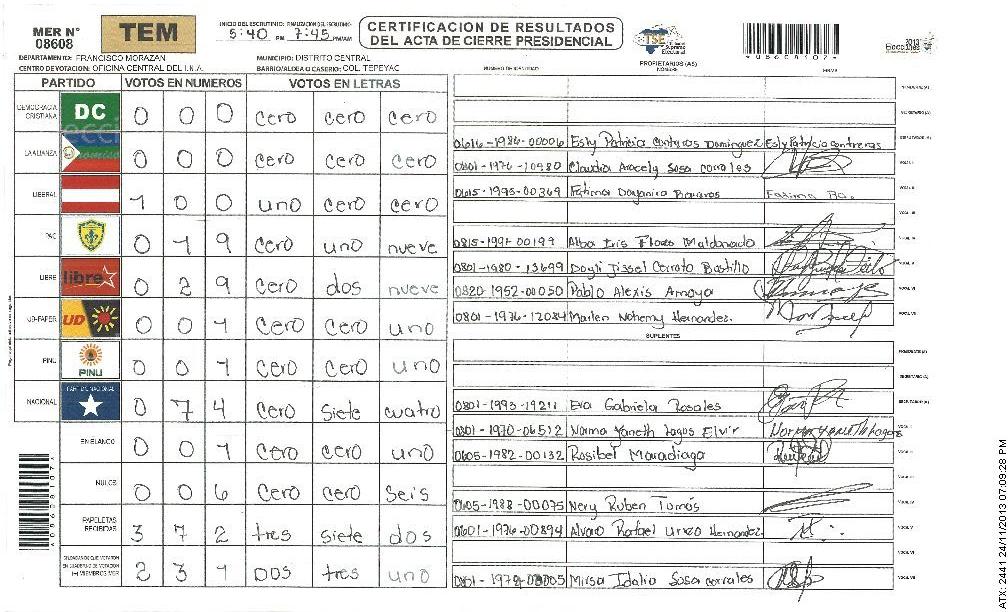 MER N° 08608
TEM
INICIO DEL ESCRUTINIO: 5:40 PM FINALIZACION DEL ESCRUTINIO: 7:45 PM/AM
CERTIFICACION DE RESULTADOS
DEL ACTA DE CIERRE PRESIDENCIAL
TSE Tribunal Supremo Electoral
*08608107*
2013 Elecciones
DEPARTAMENTO: FRANCISCO MORAZAN
MUNICIPIO: DISTRITO CENTRAL
CENTRO DE VOTACION: OFICINA CENTRAL DEL I.N.A.
BARRIO/ALDEA O CASERIO: COL. TEPEYAC
PROPIETARIOS (AS)
NUMERO DE IDENTIDAD NOMBRE FIRMA
PARTIDO VOTOS EN NUMEROS VOTOS EN LETRAS
DEMOCRACIA CRISTIANA DC 0 0 0 cero cero cero
LA ALIANZA 0 0 0 cero cero cero
LIBERAL 1 0 0 uno cero cero
PAC 0 1 9 cero uno nueve
LIBRE libre 0 2 9 cero dos nueve
UD-FAPER UD 0 0 1 cero cero uno
PINU PINU 0 0 1 cero cero uno
NACIONAL PARTIDO NACIONAL 0 7 4 cero siete cuatro
EN BLANCO 0 0 1 cero cero uno
NULOS 0 0 6 cero cero seis
PAPELETAS RECIBIDAS 3 7 2 tres siete dos
CIUDADANOS QUE VOTARON EN CUADERNO DE VOTACION (+) MIEMBROS MER 2 3 1 DOS tres uno
PRESIDENTE (A)
SECRETARIO (A)
0616-1986-00006 Esly Patricia Contreras Dominguez Esly Patricia Contreras
0801-1976-10980 Claudia Aracely Sosa corrales VOCAL I
0615-1995-00369 Fatima Dayanira VOCAL II
VOCAL III
0815-1997-00199 Alba Iris Flores Maldonado VOCAL IV
0801-1980-13699 Dagli Jissel Cerrato Bastillo VOCAL V
0820-1952-00050 Pablo Alexis Amaya VOCAL VI
0801-1976-12084 Marlen Nohemy Hernandez. VOCAL VII
SUPLENTES
PRESIDENTE (A)
SECRETARIO (A)
0801-1993-19211 Eva Gabriela Rosales
0801-1970-06512 Norma Yaneth Lagos Elvir VOCAL I
0605-1982-00132 Rosibel Maradiaga VOCAL II
VOCAL III
0605-1988-00075 Nery Ruben Tomás VOCAL IV
0601-1976-00894 Alvaro Rafael Hernandez VOCAL V
VOCAL VI
0801-1978-08005 Mirsa Idalia Sosa corrales VOCAL VII
*08608107*
ATX-2441 24/11/2013 07:09:28 PM